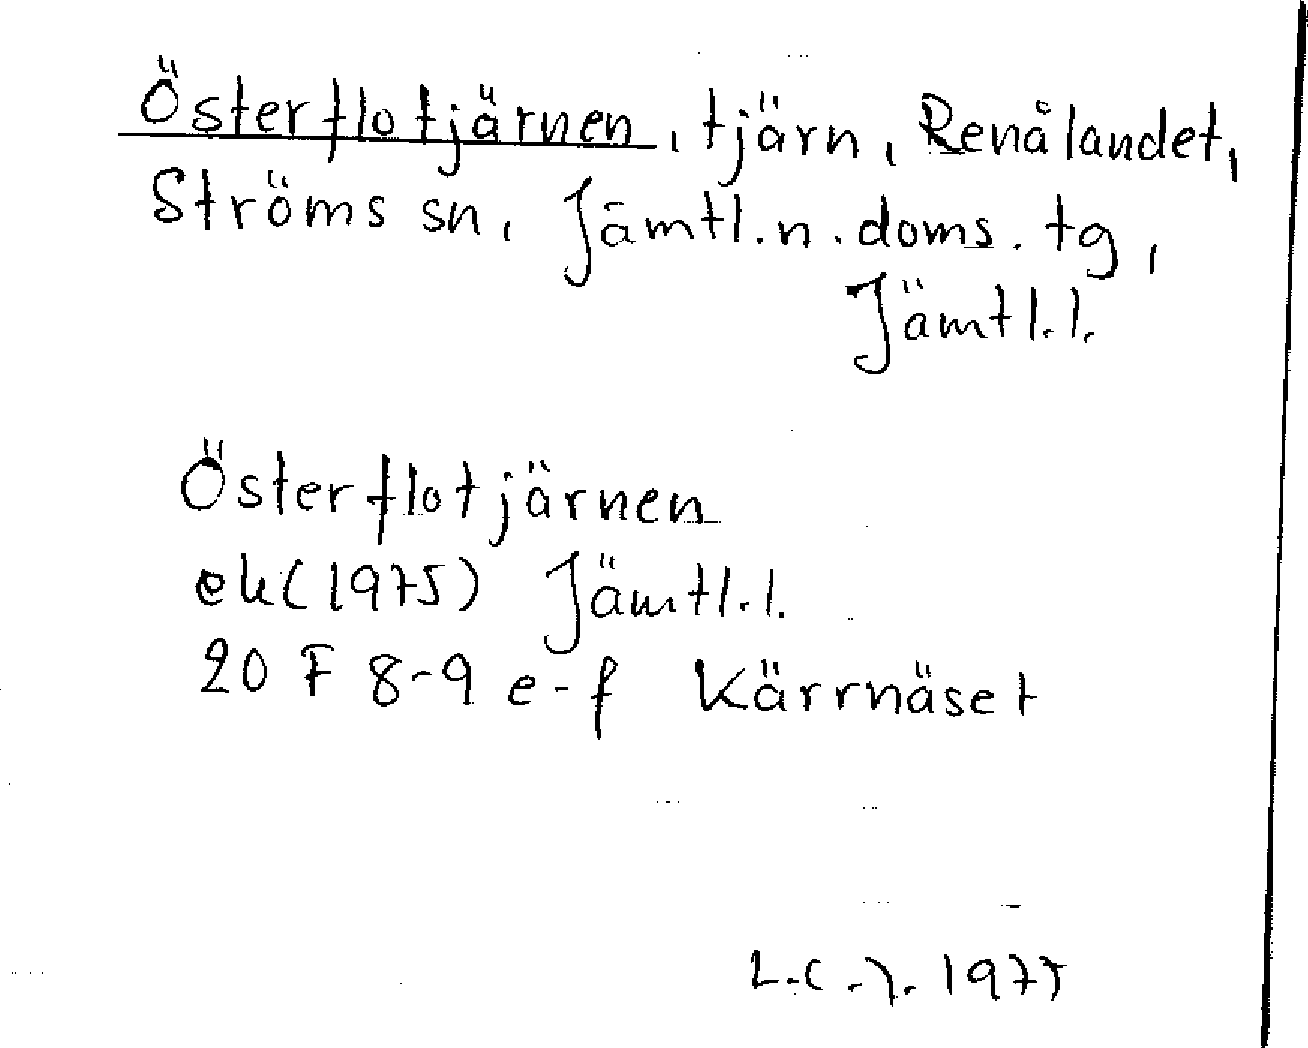 Österflotjärnen, tjärn, Renålandet,
Ströms sn, Jämtl.n.doms.tg,
Jämtl.l.
Österflotjärnen
ek(1975) Jämtl.l.
20 F 8-9 e-f Kärrnäset
1975